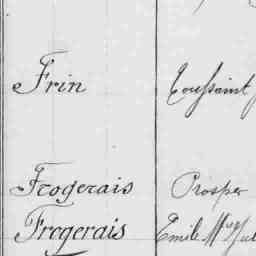 Frin Toussaint
Frogerais Prosper
Frogerais Emile